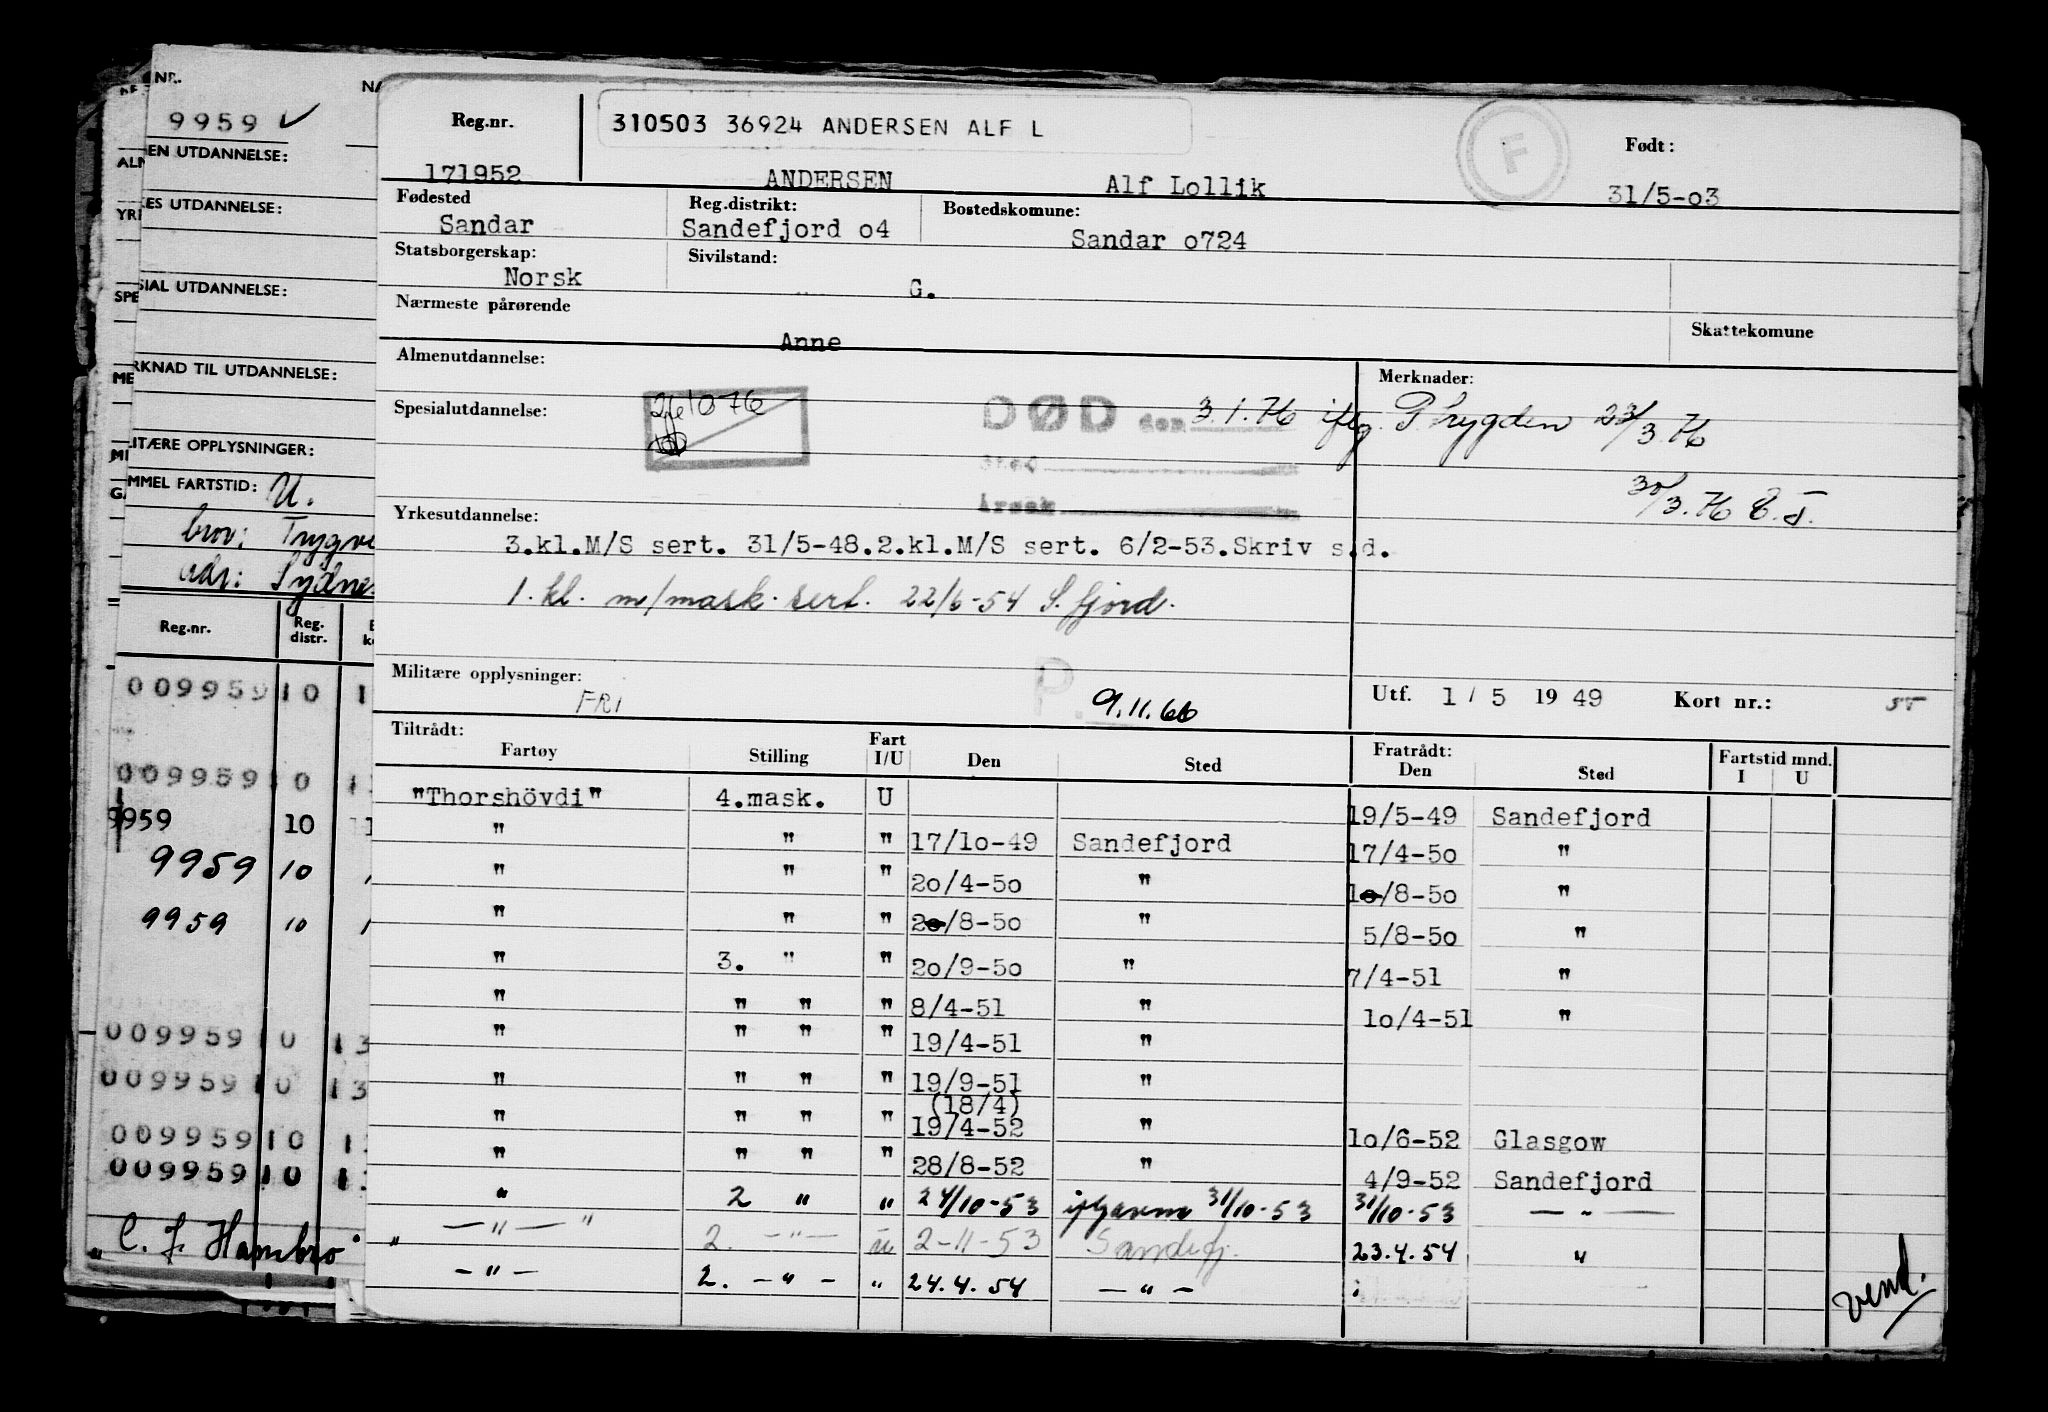 NR.
9959 ✓
EN UTDANNELSE:
ES UTDANNELSE:
SIAL UTDANNELSE:
RKNAD TIL UTDANNELSE:
LITÆRE OPPLYSNINGER:
MMEL FARTSTID: U.
brov: Trygve
adr: Sydne
Reg.nr. Reg. distr.
009959 10 1
009959 10 1
9959 10
9959 10
9959 10
009959 10 13
009959 10 13
009959 10 1
009959 10 1
" C. J. Hambro
Reg.nr. 310503 36924 ANDERSEN ALF L F Født:
171952 ANDERSEN Alf Lollik 31/5-o3
Fødested Reg.distrikt: Bostedskomune:
Sandar Sandefjord o4 Sandar o724
Statsborgerskap: Sivilstand:
Norsk G.
Nærmeste pårørende Skattekomune
Anne
Almenutdannelse: Merknader:
Spesialutdannelse: DØD den 3.1.76 iflg. P.trygden 23/3.76
Sted
30/3.76
Årsak
Yrkesutdannelse:
3.kl.M/S sert. 31/5-48.2.kl.M/S sert. 6/2-53.Skriv s.d.
1. kl. m/mask. sert. 22/6-54 S.fjord.
Militære opplysninger: FRI P. 9.11.66 Utf. 1/5 1949 Kort nr.:
Tiltrådt: Fartøy Stilling Fart I/U Den Sted Fratrådt: Den Sted Fartstid mnd. I U
"Thorshövdi" 4.mask. U 19/5-49 Sandefjord
" " " 17/1o-49 Sandefjord 17/4-5o "
" " " 2o/4-5o " 1o/8-5o "
" " " 2o/8-5o " 5/8-5o "
" 3. " " 2o/9-5o " 7/4-51 "
" " " " 8/4-51 " 1o/4-51 "
" " " " 19/4-51 "
" " " " 19/9-51 "
(18/4)
" " " " 19/4-52 " 1o/6-52 Glasgow
" " " " 28/8-52 " 4/9-52 Sandefjord
" 2 " " 24/10-53 31/10-53 31/10-53 — " —
" — " — " 2. — " — u 2-11-53 Sandefj. 23.4.54 "
— " — 2. — " — " 24.4.54 — " —
vend.